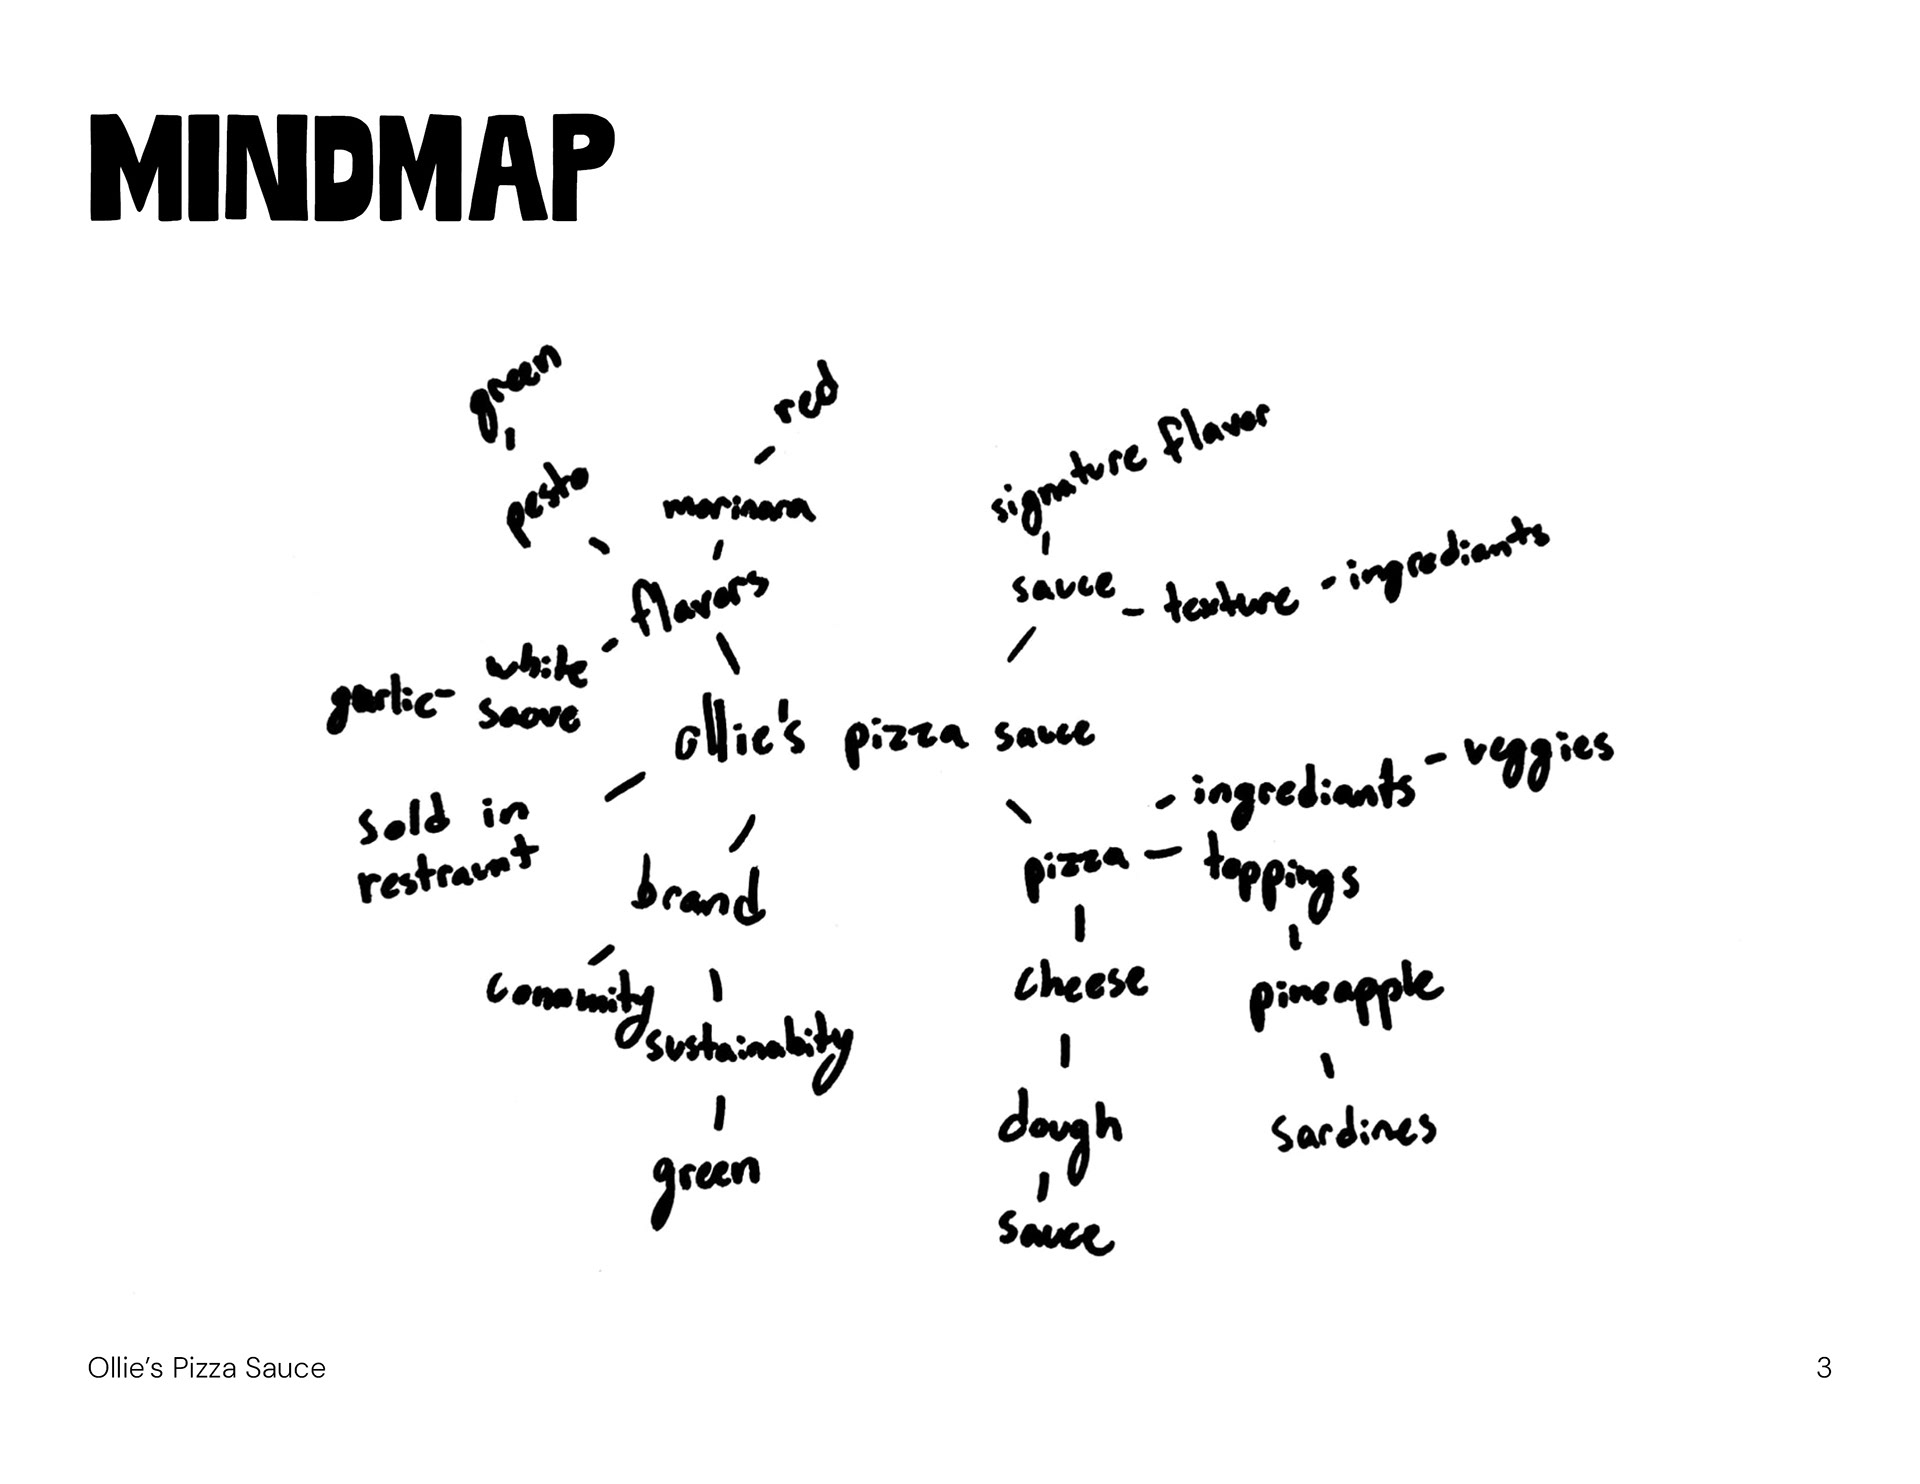 MINDMAP
green
red
pesto
marinara
signature flavor
flavors
sauce - texture - ingrediants
garlic - white
saove
ollie's pizza sauce
sold in
restraunt
ingrediants - veggies
pizza - toppings
brand
commity
cheese
pineapple
sustainabity
dough
sardines
green
sauce
Ollie's Pizza Sauce
3